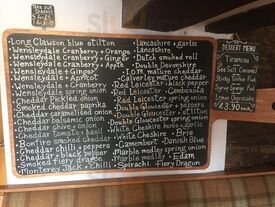 TAKE OUT
• Long Clawson blue stilton
Wensleydale Cranberry + Orange
Wensleydale Cranberry + Ginger
Wensleydale Apricot
Wensleydale + Ginger
Wensleydale Cranberry
Wensleydale spring onion
Cheddar Pickled onion
Smoked cheddar paprika
Cheddar caramelised onion
Cheddar balsamic onion
Cheddar chive + onion
Cheddar tomato + basil
Bonfire smoked cheddar
Cheddar chilli + peppers
Cheddar black pepper
Smoked Fiery Dragon
Monterey Jack + Chilli
• Lancashire + garlic
• Lancashire
• Dutch smoked roll
• Double Devonshire
• I.O.M. mature cheddar
• Calverley mature cheddar
• Red Leicester black pepper
• Red Leicester
• Cambozola
• Red Leicester spring onion
• Double Gloucester + peppers
• Double Gloucester + onion
• Double Gloucester spring onion
• White Cheshire herbs + garlic
• White Cheshire
• Brie
• Camembert
• Danish Blue
• Marble mature
• Marble medley
• Edam
• Fiery Dragon
DESSERT MENU
Tiramisu
Sea Salt Caramel
Sticky Toffee Pud
Syrup Sponge Pud
Lemon Cheesecake
£3.90